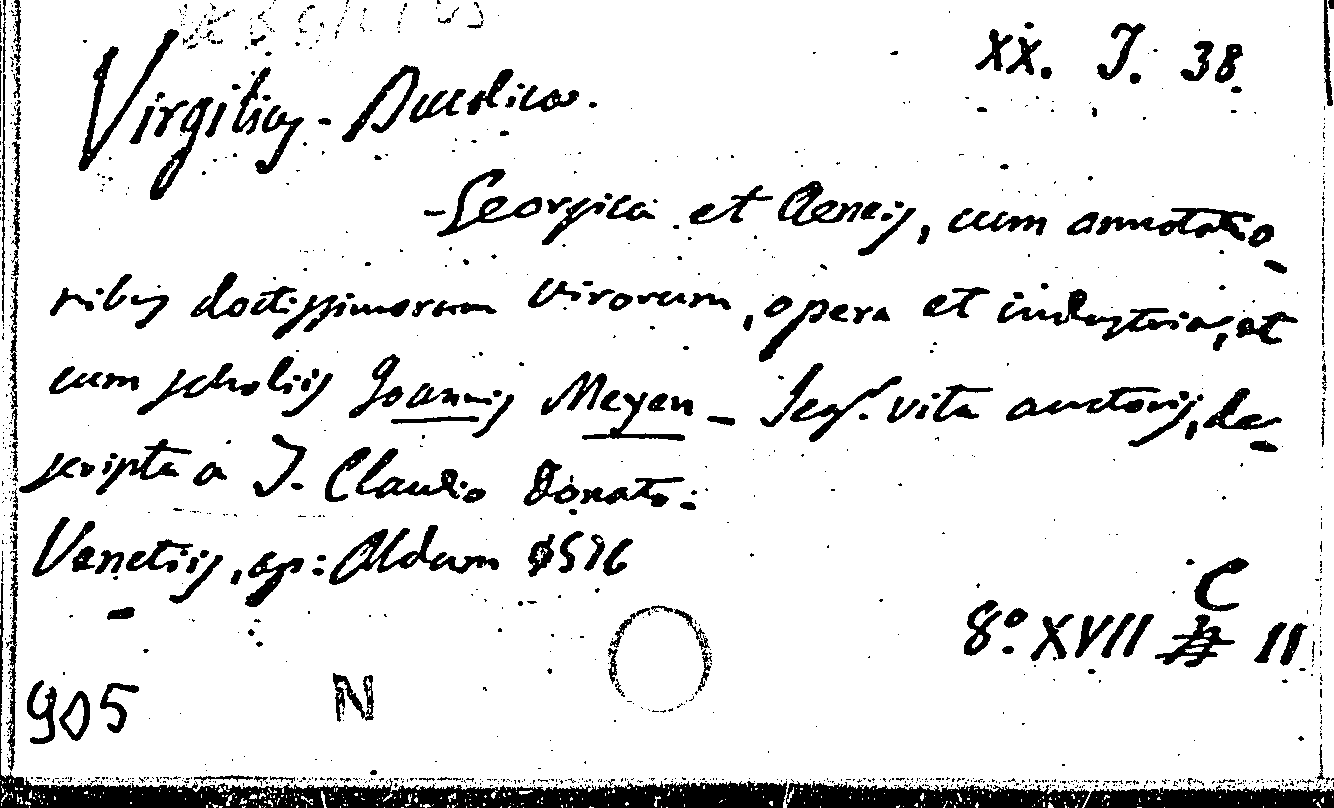 VERGILIUS
XX. J. 38.
Virgilius - Bucolica.
- Georgica et Aeneis, cum annotatio-
nibus doctissimorum virorum, opera et industria, et
cum scholiis Joannis Meyen - Seq. vita auctoris, de-
scripta a T. Claudio Donato.
Venetiis, ap: Aldum 1576
C
8º. XVII II
905
N